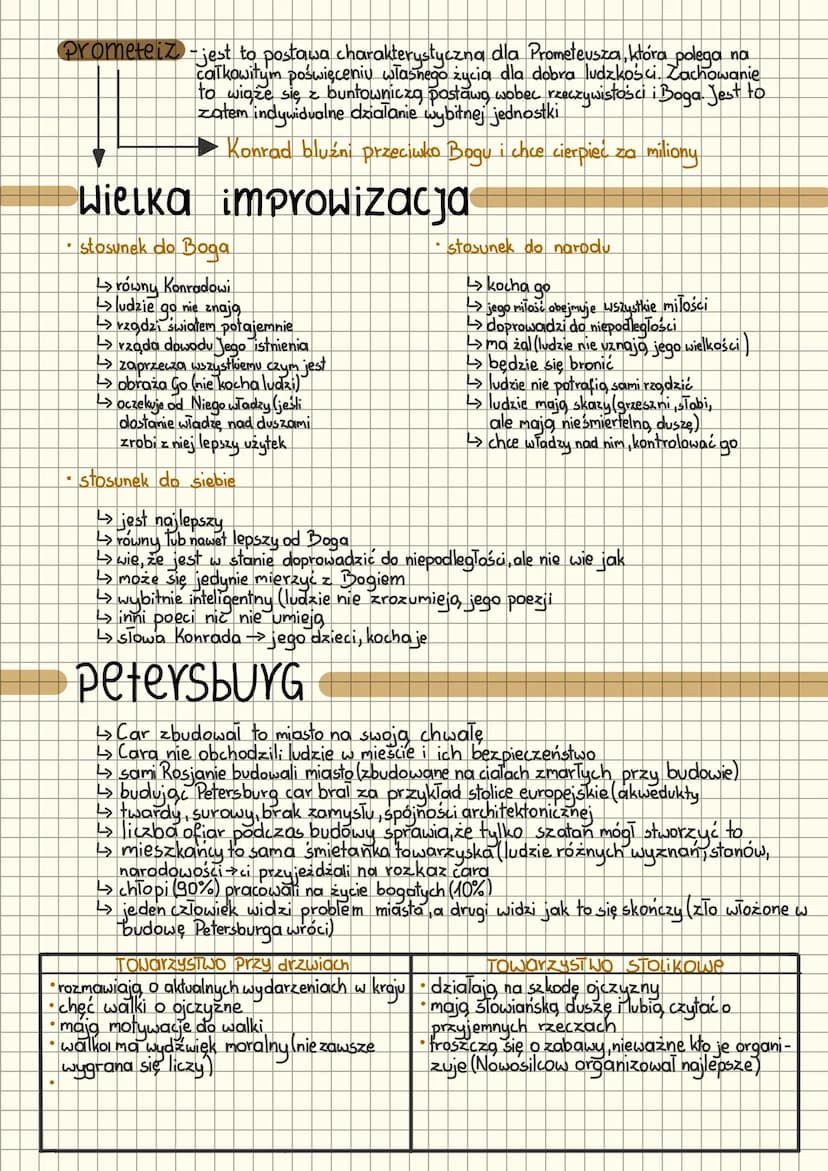 prometeiz - jest to postawa charakterystyczna dla Prometeusza, która polega na
całkowitym poświęceniu własnego życia dla dobra ludzkości. Zachowanie
to wiąże się z buntowniczą postawą wobec rzeczywistości i Boga. Jest to
zatem indywidualne działanie wybitnej jednostki
Konrad bluźni przeciwko Bogu i chce cierpieć za miliony
Wielka improwizacja
• stosunek do Boga
↳ równy Konradowi
↳ ludzie go nie znają
↳ rządzi światem potajemnie
↳ rząda dowodu Jego istnienia
↳ zaprzecza wszystkiemu czym jest
↳ obraża Go (nie kocha ludzi)
↳ oczekuje od Niego władzy (jeśli
dostanie władzę nad duszami
zrobi z niej lepszy użytek
• stosunek do narodu
↳ kocha go
↳ jego miłość obejmuje wszystkie miłości
↳ doprowadzi do niepodległości
↳ ma żal (ludzie nie uznają jego wielkości)
↳ będzie się bronić
↳ ludzie nie potrafią sami rządzić
↳ ludzie mają skazy (grzeszni, słabi,
ale mają nieśmiertelną duszę)
↳ chce władzy nad nim, kontrolować go
• stosunek do siebie
↳ jest najlepszy
↳ równy lub nawet lepszy od Boga
↳ wie, że jest w stanie doprowadzić do niepodległości, ale nie wie jak
↳ może się jedynie mierzyć z Bogiem
↳ wybitnie inteligentny (ludzie nie zrozumieją jego poezji
↳ inni poeci nic nie umieją
↳ słowa Konrada → jego dzieci, kocha je
Petersburg
↳ Car zbudował to miasto na swoją chwałę
↳ Cara nie obchodzili ludzie w mieście i ich bezpieczeństwo
↳ sami Rosjanie budowali miasto (zbudowane na ciałach zmarłych przy budowie)
↳ budując Petersburg car brał za przykład stolice europejskie (akwedukty
↳ twardy, surowy, brak zamysłu, spójności architektonicznej
↳ liczba ofiar podczas budowy sprawia, że tylko szatan mógł stworzyć to
↳ mieszkańcy to sama śmietanka towarzyska (ludzie różnych wyznań, stanów,
narodowości → ci przyjeżdżali na rozkaz cara
↳ chłopi (90%) pracowali na życie bogatych (10%)
↳ jeden człowiek widzi problem miasta, a drugi widzi jak to się skończy (zło włożone w
budowę Petersburga wróci)
Towarzystwo przy drzwiach
• rozmawiają o aktualnych wydarzeniach w kraju
• chęć walki o ojczyznę
• mają motywacje do walki
• walka ma wydźwięk moralny (nie zawsze
wygrana się liczy)
•
Towarzystwo stolikowe
• działają na szkodę ojczyzny
• mają słowiańską duszę i lubią czytać o
przyjemnych rzeczach
• troszczą się o zabawy, nieważne kto je organi-
zuje (Nowosilcow organizował najlepsze)